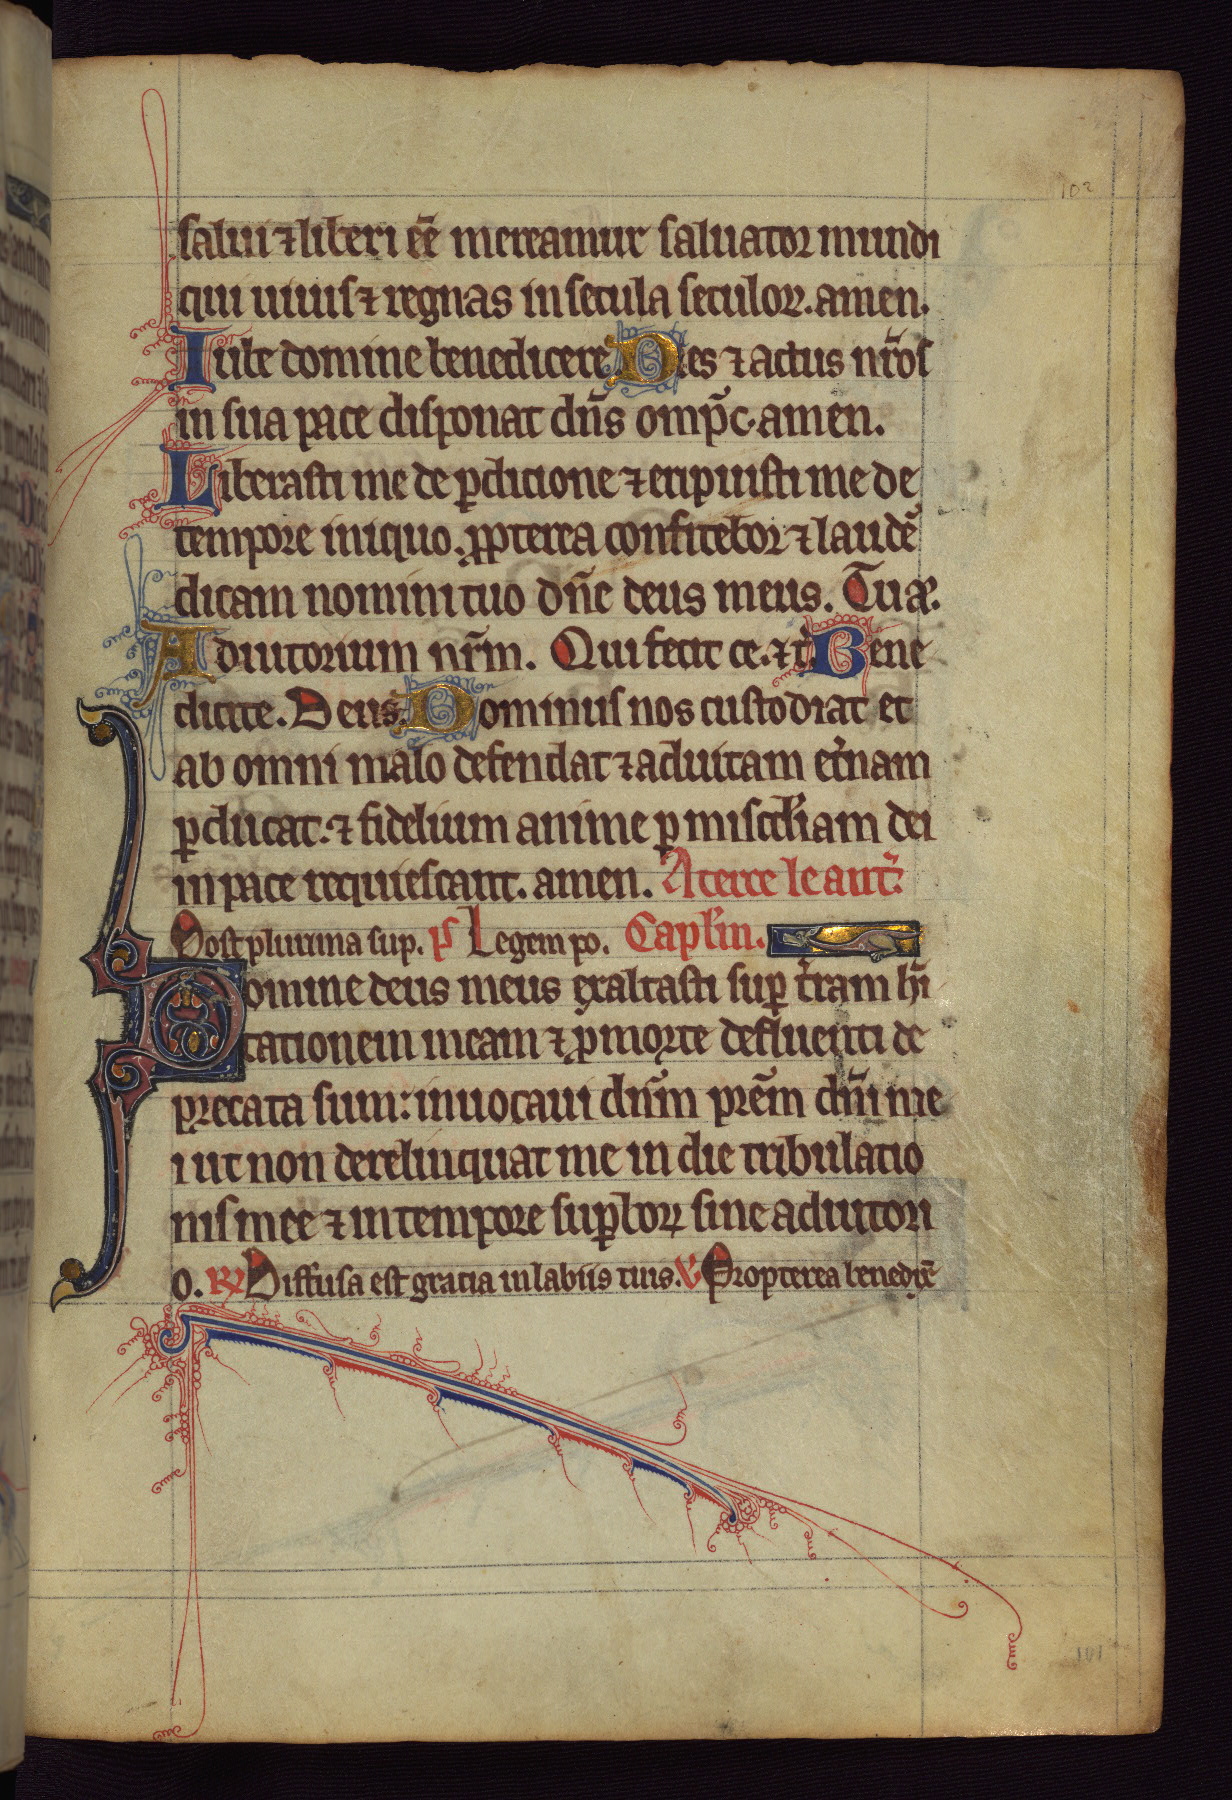 102
salui ⁊ liberi eē mereamur saluator mundi
qui uiuis ⁊ regnas in secula seculoꝝ. amen.
Iube domine benedicere. Dies ⁊ actus nr̄os
in sua pace disponat dn̄s omp̄c. amen.
Liberasti me de ꝑdicione ⁊ eripuisti me de
tempore iniquo. ꝓpterea confitebor ⁊ laudē
dicam nomini tuo dn̄e deus meus. Tu aꝭ.
Adiutorium nr̄m. Qui fecit ce. ⁊ t̄. Bene
dicite. Deus. Dominus nos custodiat et
ab omni malo defendat ⁊ ad uitam et̄nam
ꝑducat: ⁊ fidelium anime ꝑ misc̄liam dei
in pace requiescant. amen. A terce le ant̄.
Post plurima sup. p̄s Legem po. Capl̄m.
Domine deus meus exaltasti suꝑ t̄ram h̄i
tationem meam ⁊ ꝓ morte defluenti de
precata sum: inuocaui dn̄m prēm dn̄i me
i ut non derelinquat me in die tribulatio
nis mee ⁊ in tempore suꝑboꝝ sine adiutori
o. ℟ Diffusa est gracia in labiis tuis. ℣ Propterea benedix̄
101